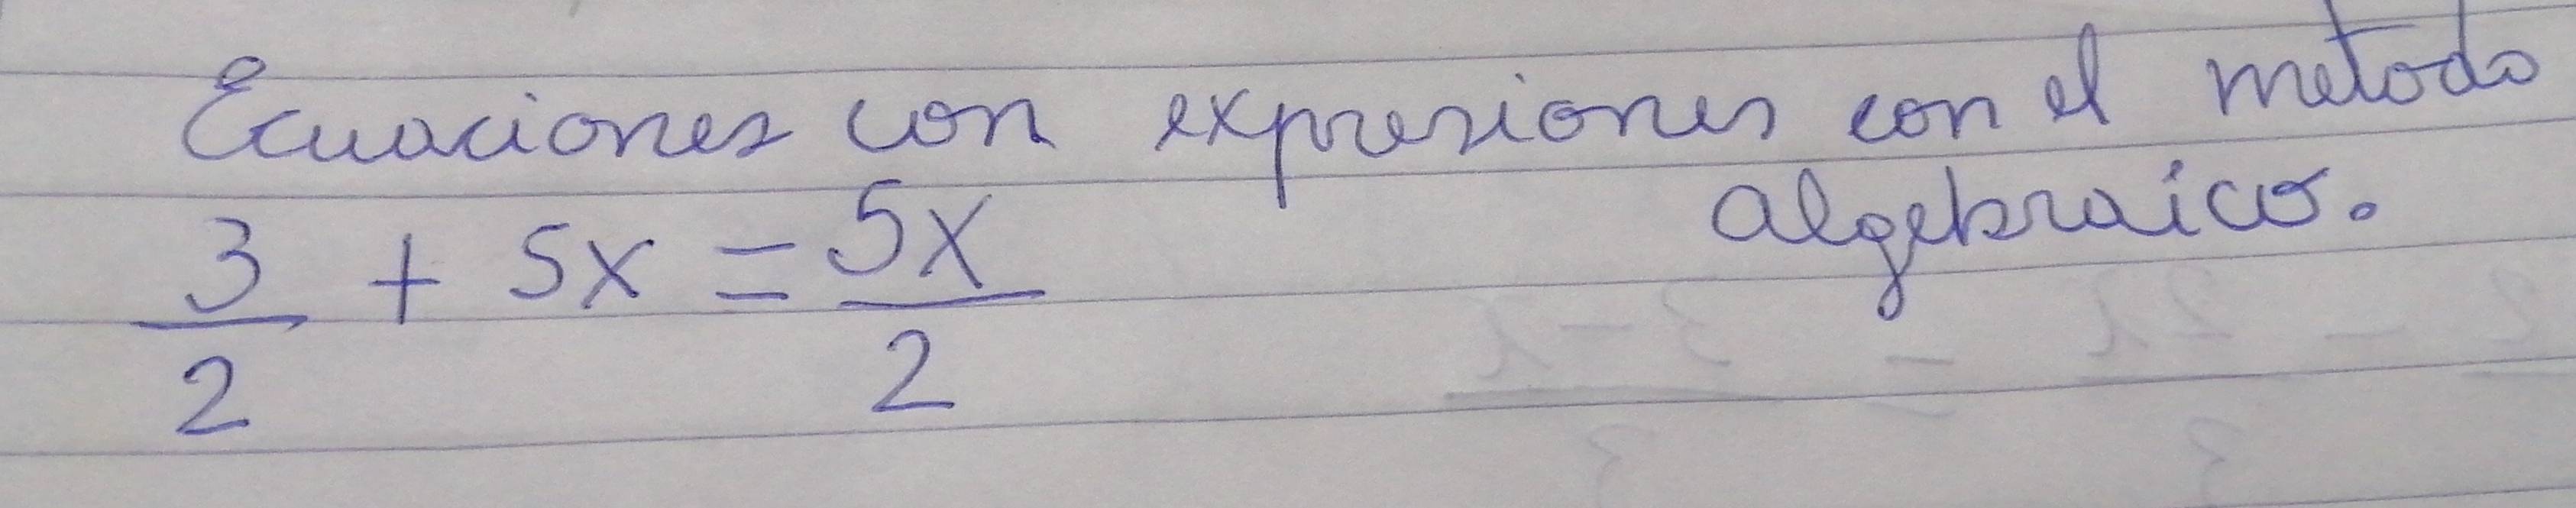 Ecuaciones con expresiones con el metodo
algebraico.
3/2 + 5x = 5x/2